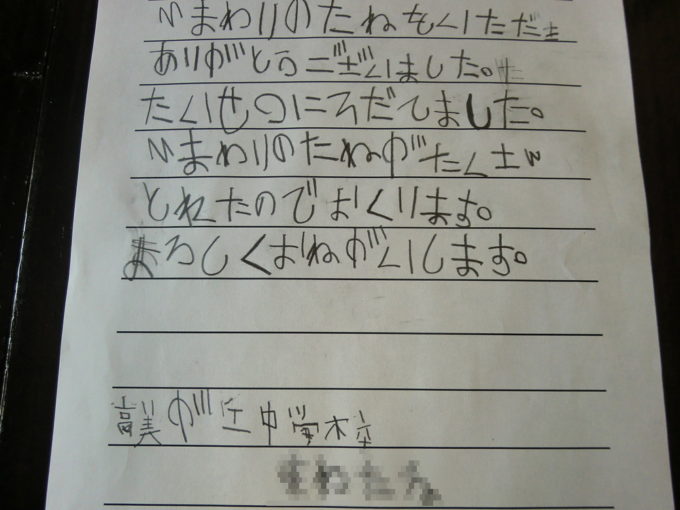 ひまわりのたねをいただき
ありがとうございました。
たいせつにそだてました。
ひまわりのたねがたくさん
とれたのでおくります。
よろしくおねがいします。
高美が丘中学校